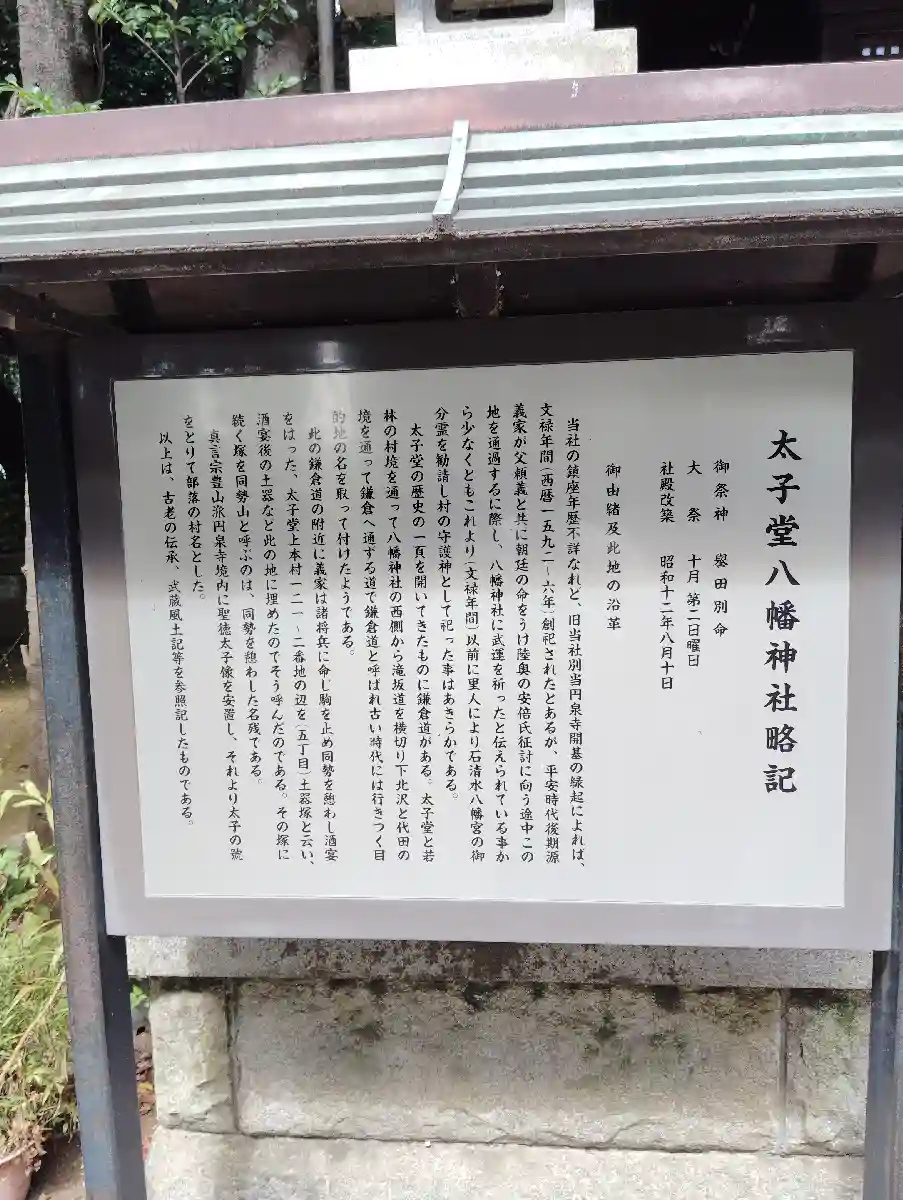 太子堂八幡神社略記
御祭神　誉田別命
大　祭　十月第二日曜日
社殿改築　昭和十二年八月十日
御由緒及此地の沿革
当社の鎮座年歴不詳なれど、旧当社別当円泉寺開基の縁起によれば、
文禄年間(西暦一五九二~六年)創祀されたとあるが、平安時代後期源
義家が父頼義と共に朝廷の命をうけ陸奥の安倍氏征討に向う途中この
地を通過するに際し、八幡神社に武運を祈ったと伝えられている事か
ら少なくともこれより(文禄年間)以前に里人により石清水八幡宮の御
分霊を勧請し村の守護神として祀った事はあきらかである。
太子堂の歴史の一頁を開いてきたものに鎌倉道がある。太子堂と若
林の村境を通って八幡神社の西側から滝坂道を横切り下北沢と代田の
境を通って鎌倉へ通ずる道で鎌倉道と呼ばれ古い時代には行きつく目
的地の名を取って付けたようである。
此の鎌倉道の附近に義家は諸将兵に命じ駒を止め同勢を憩わし酒宴
をはった、太子堂上本村一二一~二番地の辺を(五丁目)土器塚と云い、
酒宴後の土器など此の地に埋めたのでそう呼んだのである。その塚に
続く塚を同勢山と呼ぶのは、同勢を憩わした名残である。
真言宗豊山派円泉寺境内に聖徳太子像を安置し、それより太子の號
をとりて部落の村名とした。
以上は、古老の伝承、武蔵風土記等を参照記したものである。